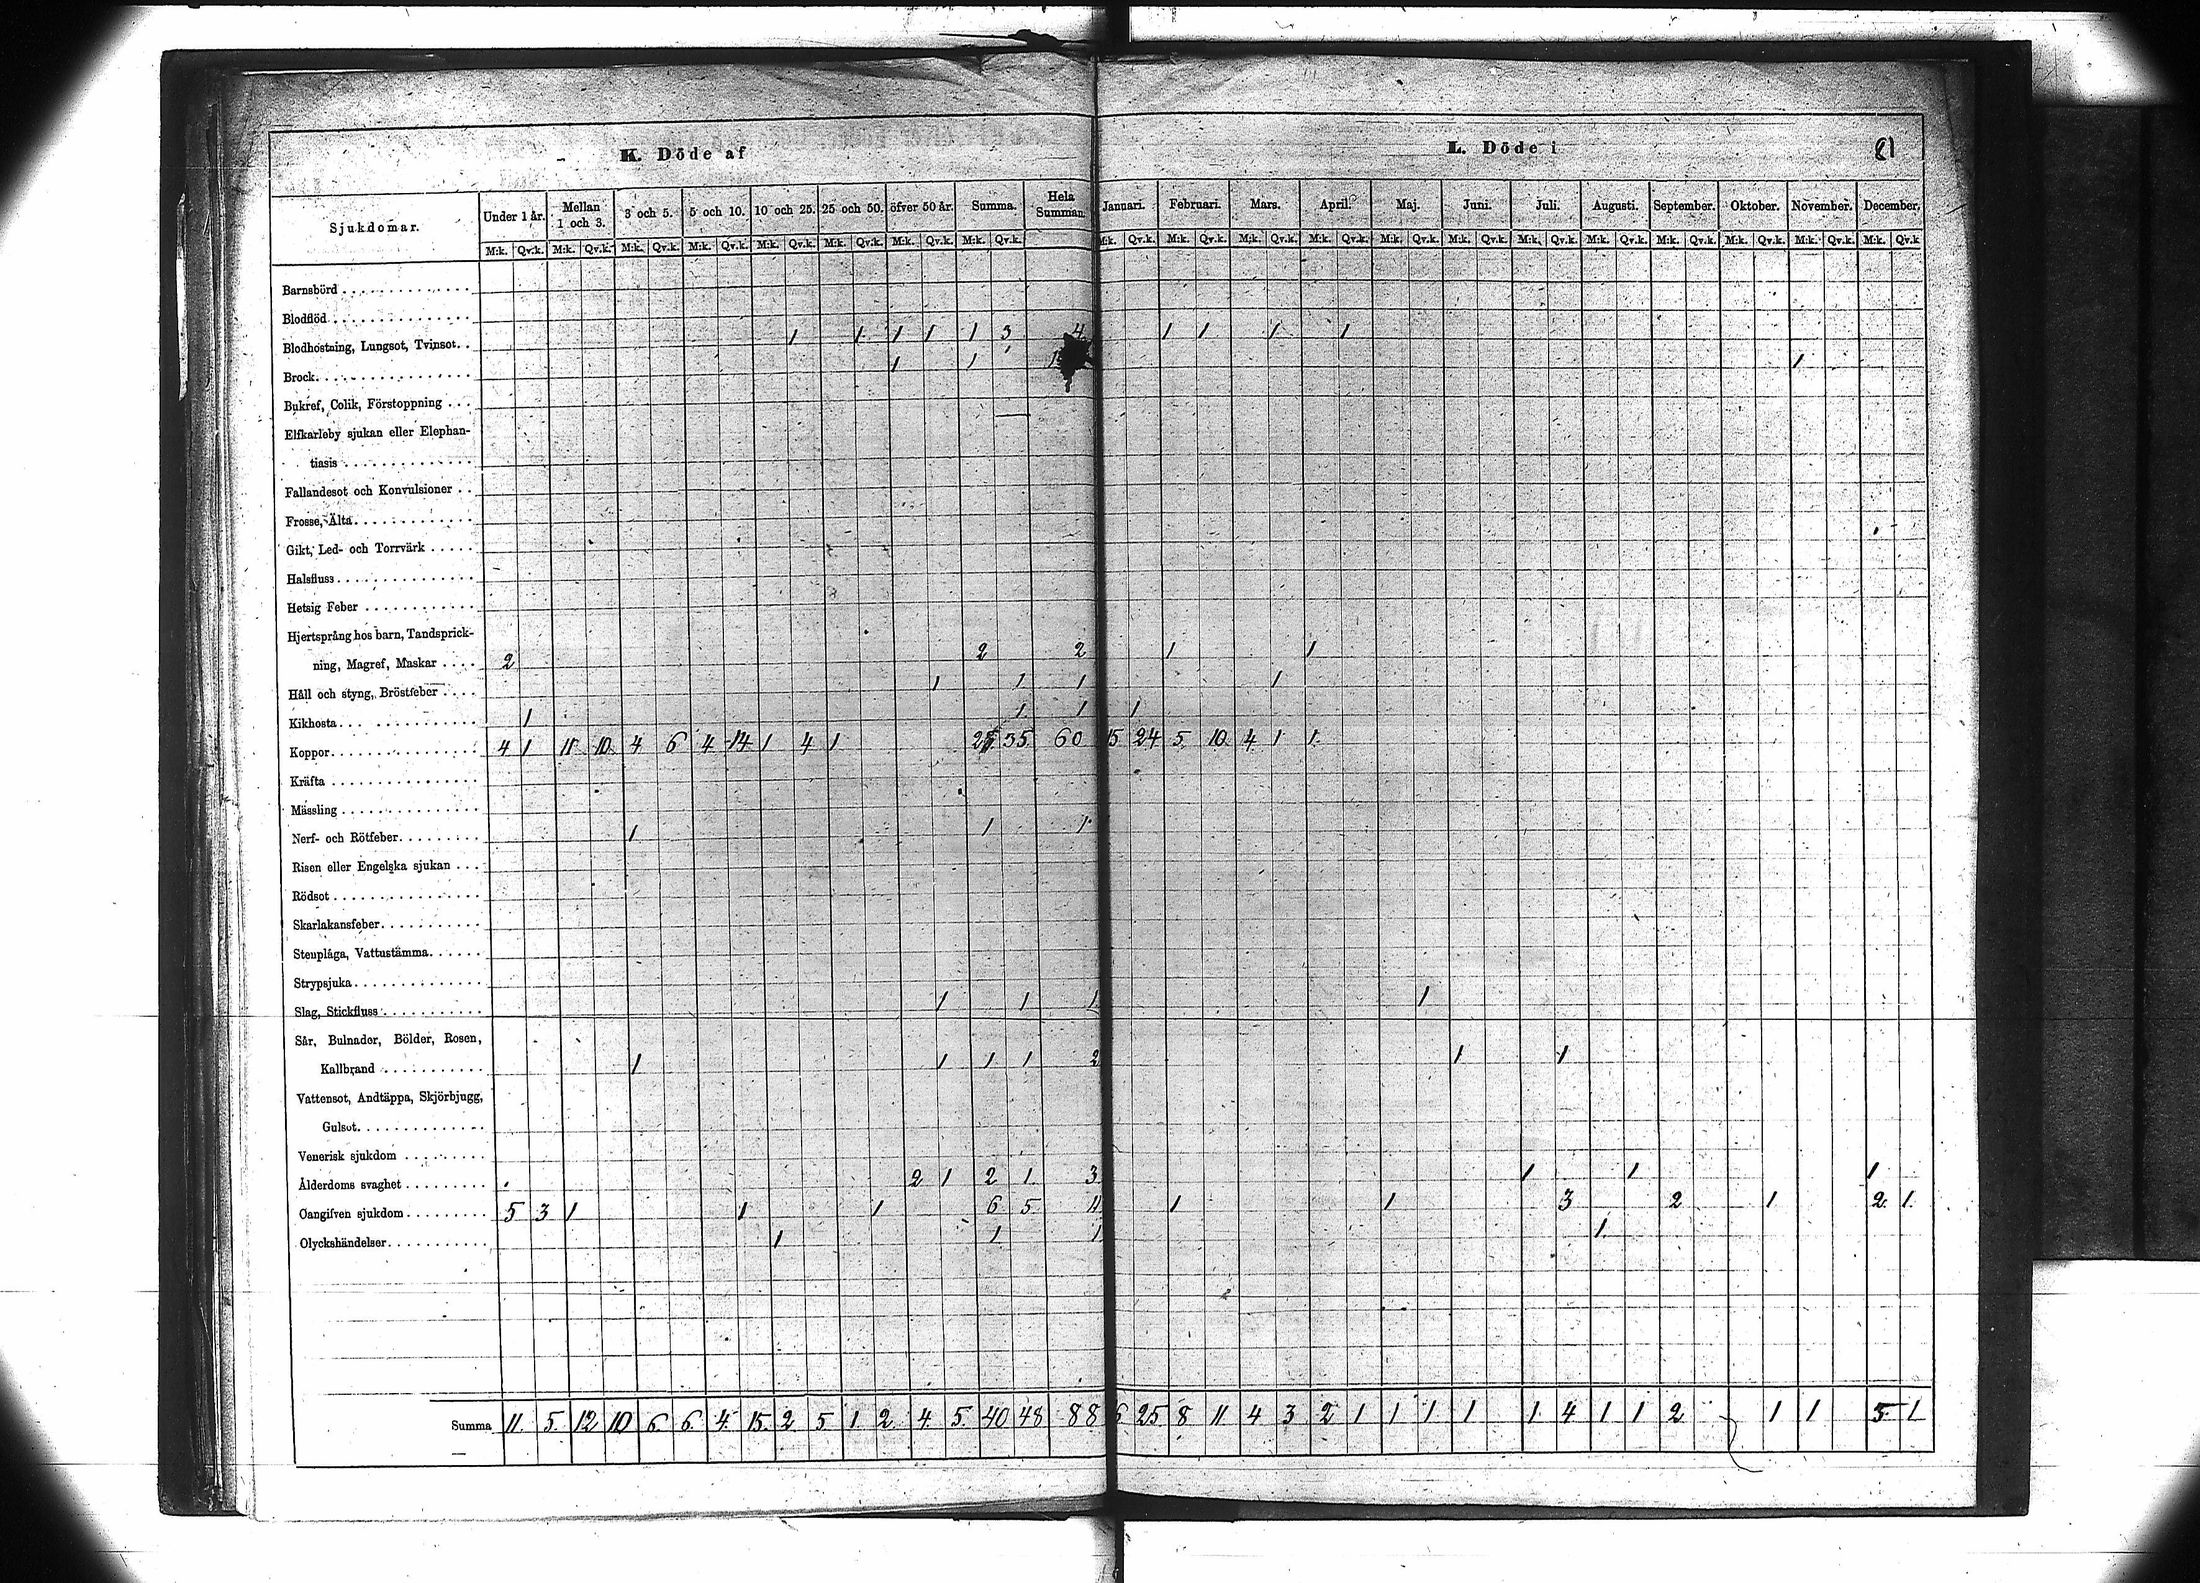 K. Döde af L. Döde i 81
Sjukdomar. Under 1 år. Mellan 1 och 3. 3 och 5. 5 och 10. 10 och 25. 25 och 50. öfver 50 år. Summa. Hela Summan. Januari. Februari. Mars. April. Maj. Juni. Juli. Augusti. September. Oktober. November. December.
M:k. Qv.k. M:k. Qv.k. M:k. Qv.k. M:k. Qv.k. M:k. Qv.k. M:k. Qv.k. M:k. Qv.k. M:k. Qv.k. M:k. Qv.k. M:k. Qv.k. M:k. Qv.k. M:k. Qv.k. M:k. Qv.k. M:k. Qv.k. M:k. Qv.k. M:k. Qv.k. M:k. Qv.k. M:k. Qv.k. M:k. Qv.k. M:k. Qv.k
Barnsbörd
Blodflöd
Blodhostning, Lungsot, Tvinsot. 1 1 1 1 1 3 4 1 1 1 1
Brock. 1 1 1 1
Bukref, Colik, Förstoppning
Elfkarleby sjukan eller Elephan-
tiasis
Fallandesot och Konvulsioner
Frosse, Älta
Gikt, Led- och Torrvärk
Halsfluss
Hetsig Feber
Hjertsprång hos barn, Tandsprick-
ning, Magref, Maskar 2 2 2 1 1
Håll och styng, Bröstfeber 1 1 1 1
Kikhosta 1 1 1 1
Koppor 4 1 11 10 4 6 4 14 1 4 1 25 35 60 15 24 5 10 4 1 1
Kräfta
Mässling
Nerf- och Rötfeber 1 1 1
Risen eller Engelska sjukan
Rödsot
Skarlakansfeber
Stenplåga, Vattustämma
Strypsjuka
Slag, Stickfluss 1 1 1 1
Sår, Bulnader, Bölder, Rosen,
Kallbrand 1 1 1 1 2 1 1
Vattensot, Andtäppa, Skjörbjugg,
Gulsot
Venerisk sjukdom
Ålderdoms svaghet 2 1 2 1 3 1 1 1
Oangifven sjukdom 5 3 1 1 1 6 5 11 1 1 3 2 1 2 1
Olyckshändelser 1 1 1 1
Summa 11. 5. 12 10 6. 6. 4. 15. 2 5 1. 2. 4. 5. 40 48 88 6 25 8 11 4 3 2 1 1 1 1 1 4 1 1 2 1 1 3 1